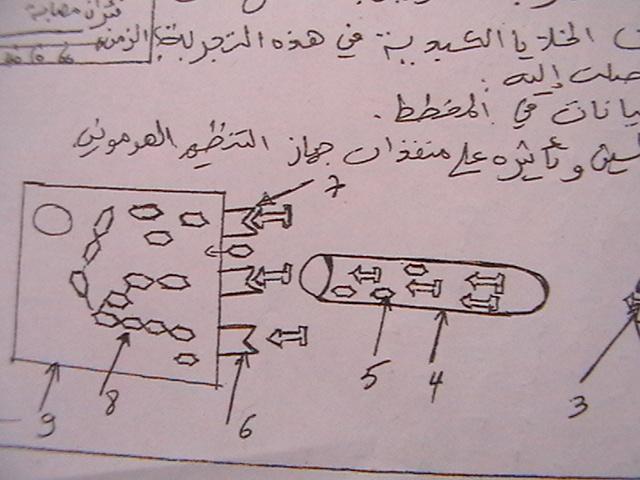 فئران مصابة
الزمن
الخلايا الكبدية في هذه التجربة
صلت إليه.
يانات في المخطط.
سين وتأثيره على منفذات جهاز التنظيم الهرموني
7
5
4
3
9
8
6